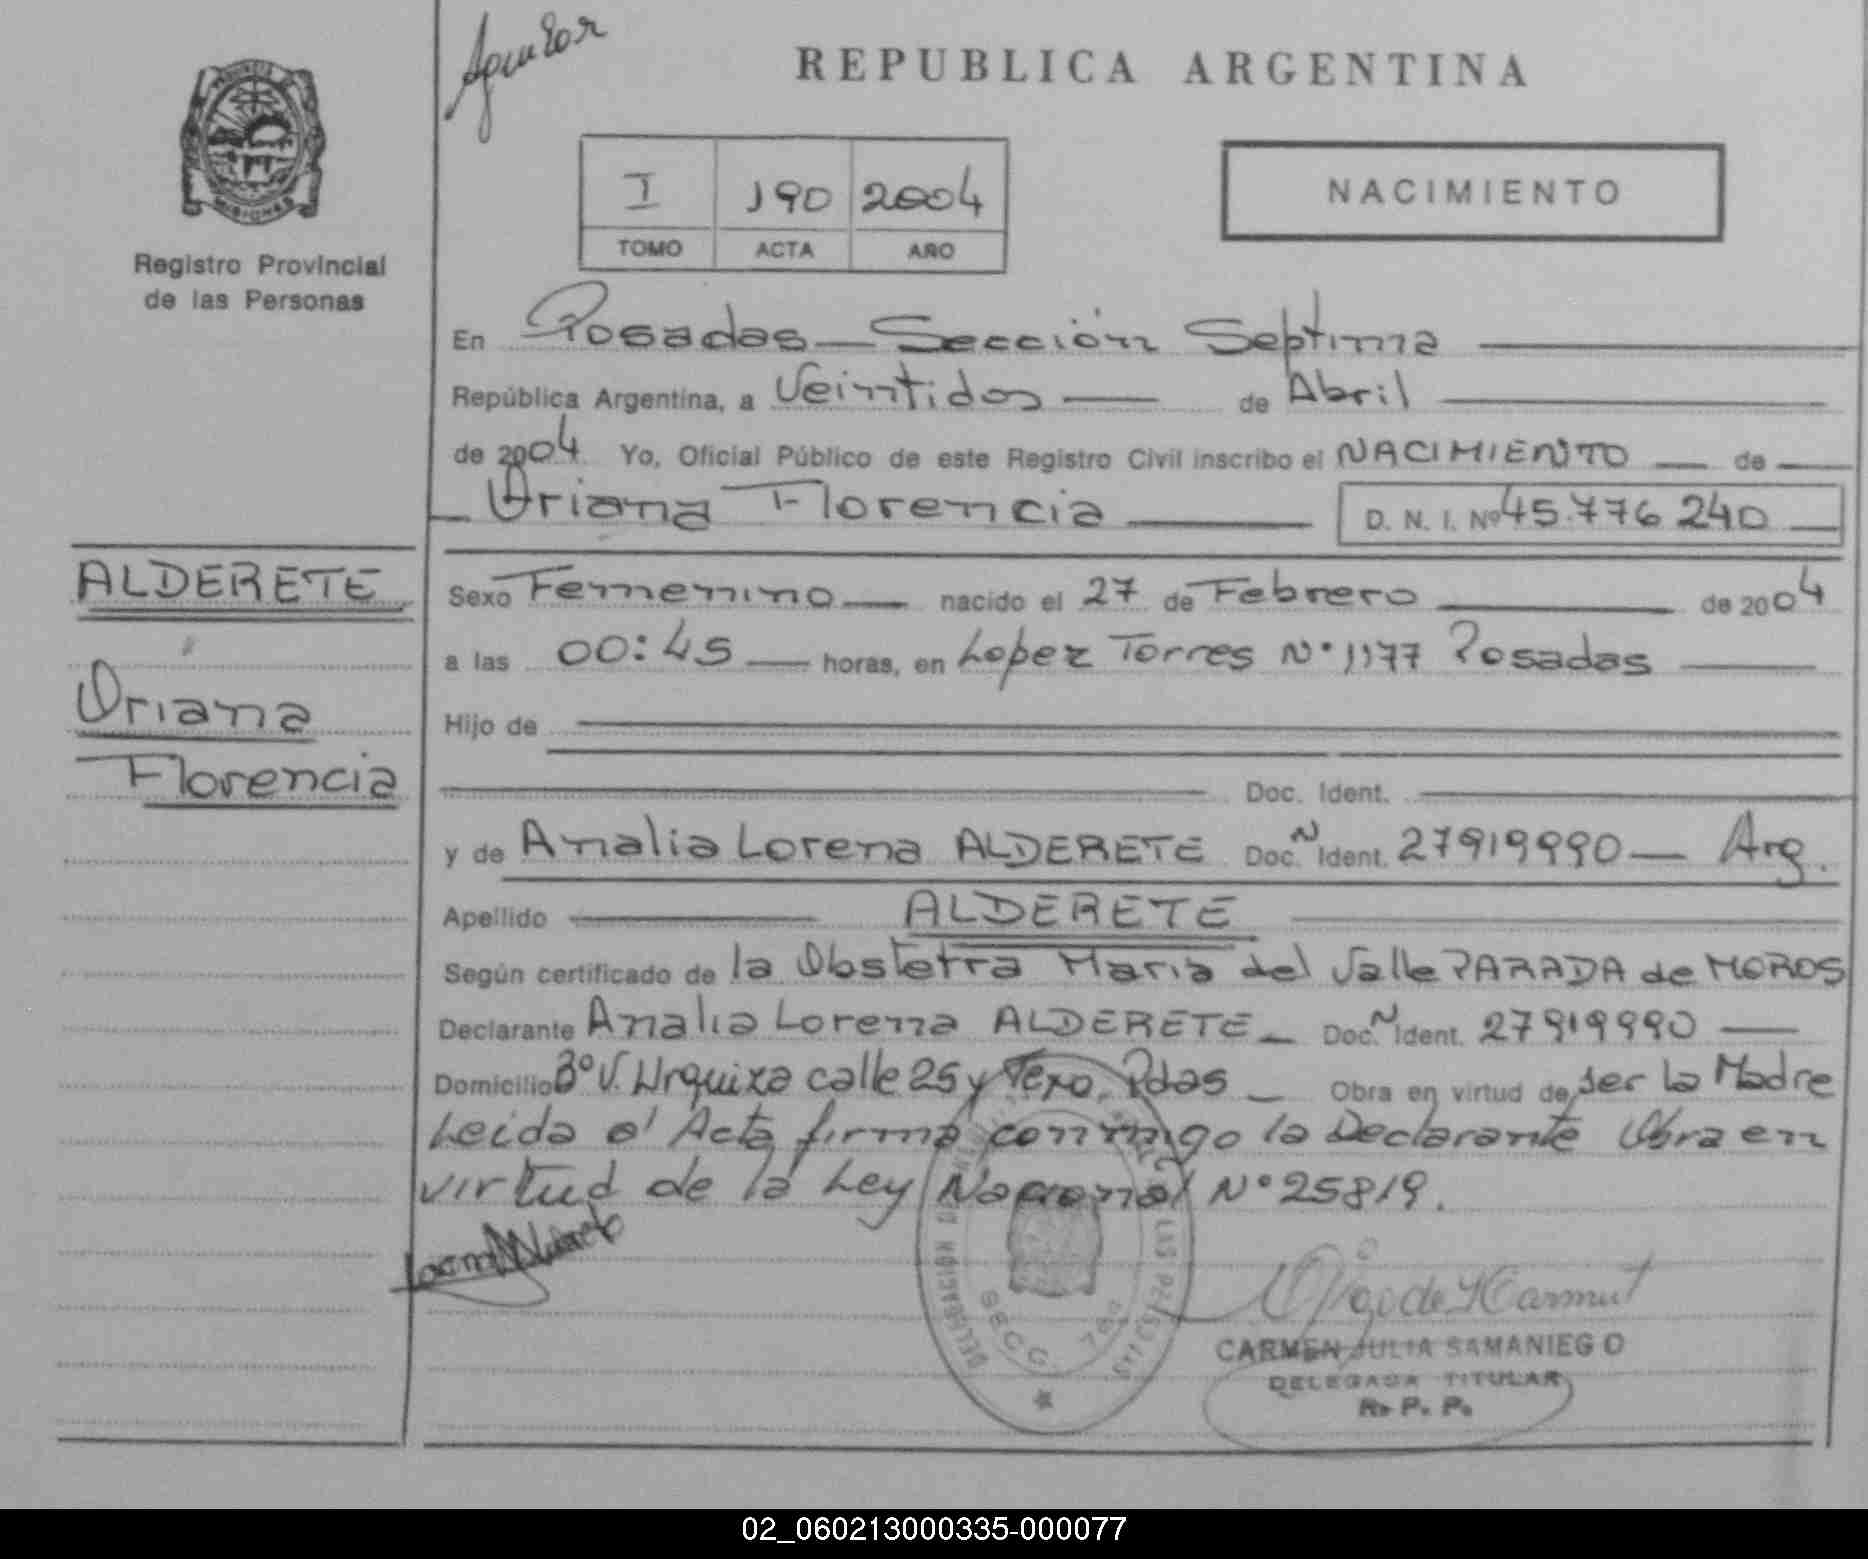 Aguilar
REPUBLICA ARGENTINA
MISIONES
Registro Provincial
de las Personas
I 190 2004
TOMO ACTA AÑO
NACIMIENTO
En Posadas — Sección Septima
República Argentina, a Veintidos de Abril
de 2004 Yo, Oficial Público de este Registro Civil inscribo el NACIMIENTO de
Oriana Florencia D. N. I. Nº 45.776 240
ALDERETE
Oriana
Florencia
Sexo Femenino nacido el 27 de Febrero de 2004
a las 00:45 horas, en Lopez Torres Nº 1177 Posadas
Hijo de
Doc. Ident.
y de Analia Lorena ALDERETE Doc. N Ident. 27919990 — Arg.
Apellido ALDERETE
Según certificado de la Obstetra Maria del Valle PARADA de MOROS
Declarante Analia Lorena ALDERETE Doc. N Ident. 27919990
Domicilio Bº V. Urquiza calle 25 y Pdas Obra en virtud de ser la Madre
Leida el Acta firma conmigo la Declarante Obra en
virtud de la Ley Nacional Nº 25819.
DELEGACION LAS PERSONAS
SECC. 7
CARMEN JULIA SAMANIEGO
DELEGADA TITULAR
R. P. P.
02_060213000335-000077